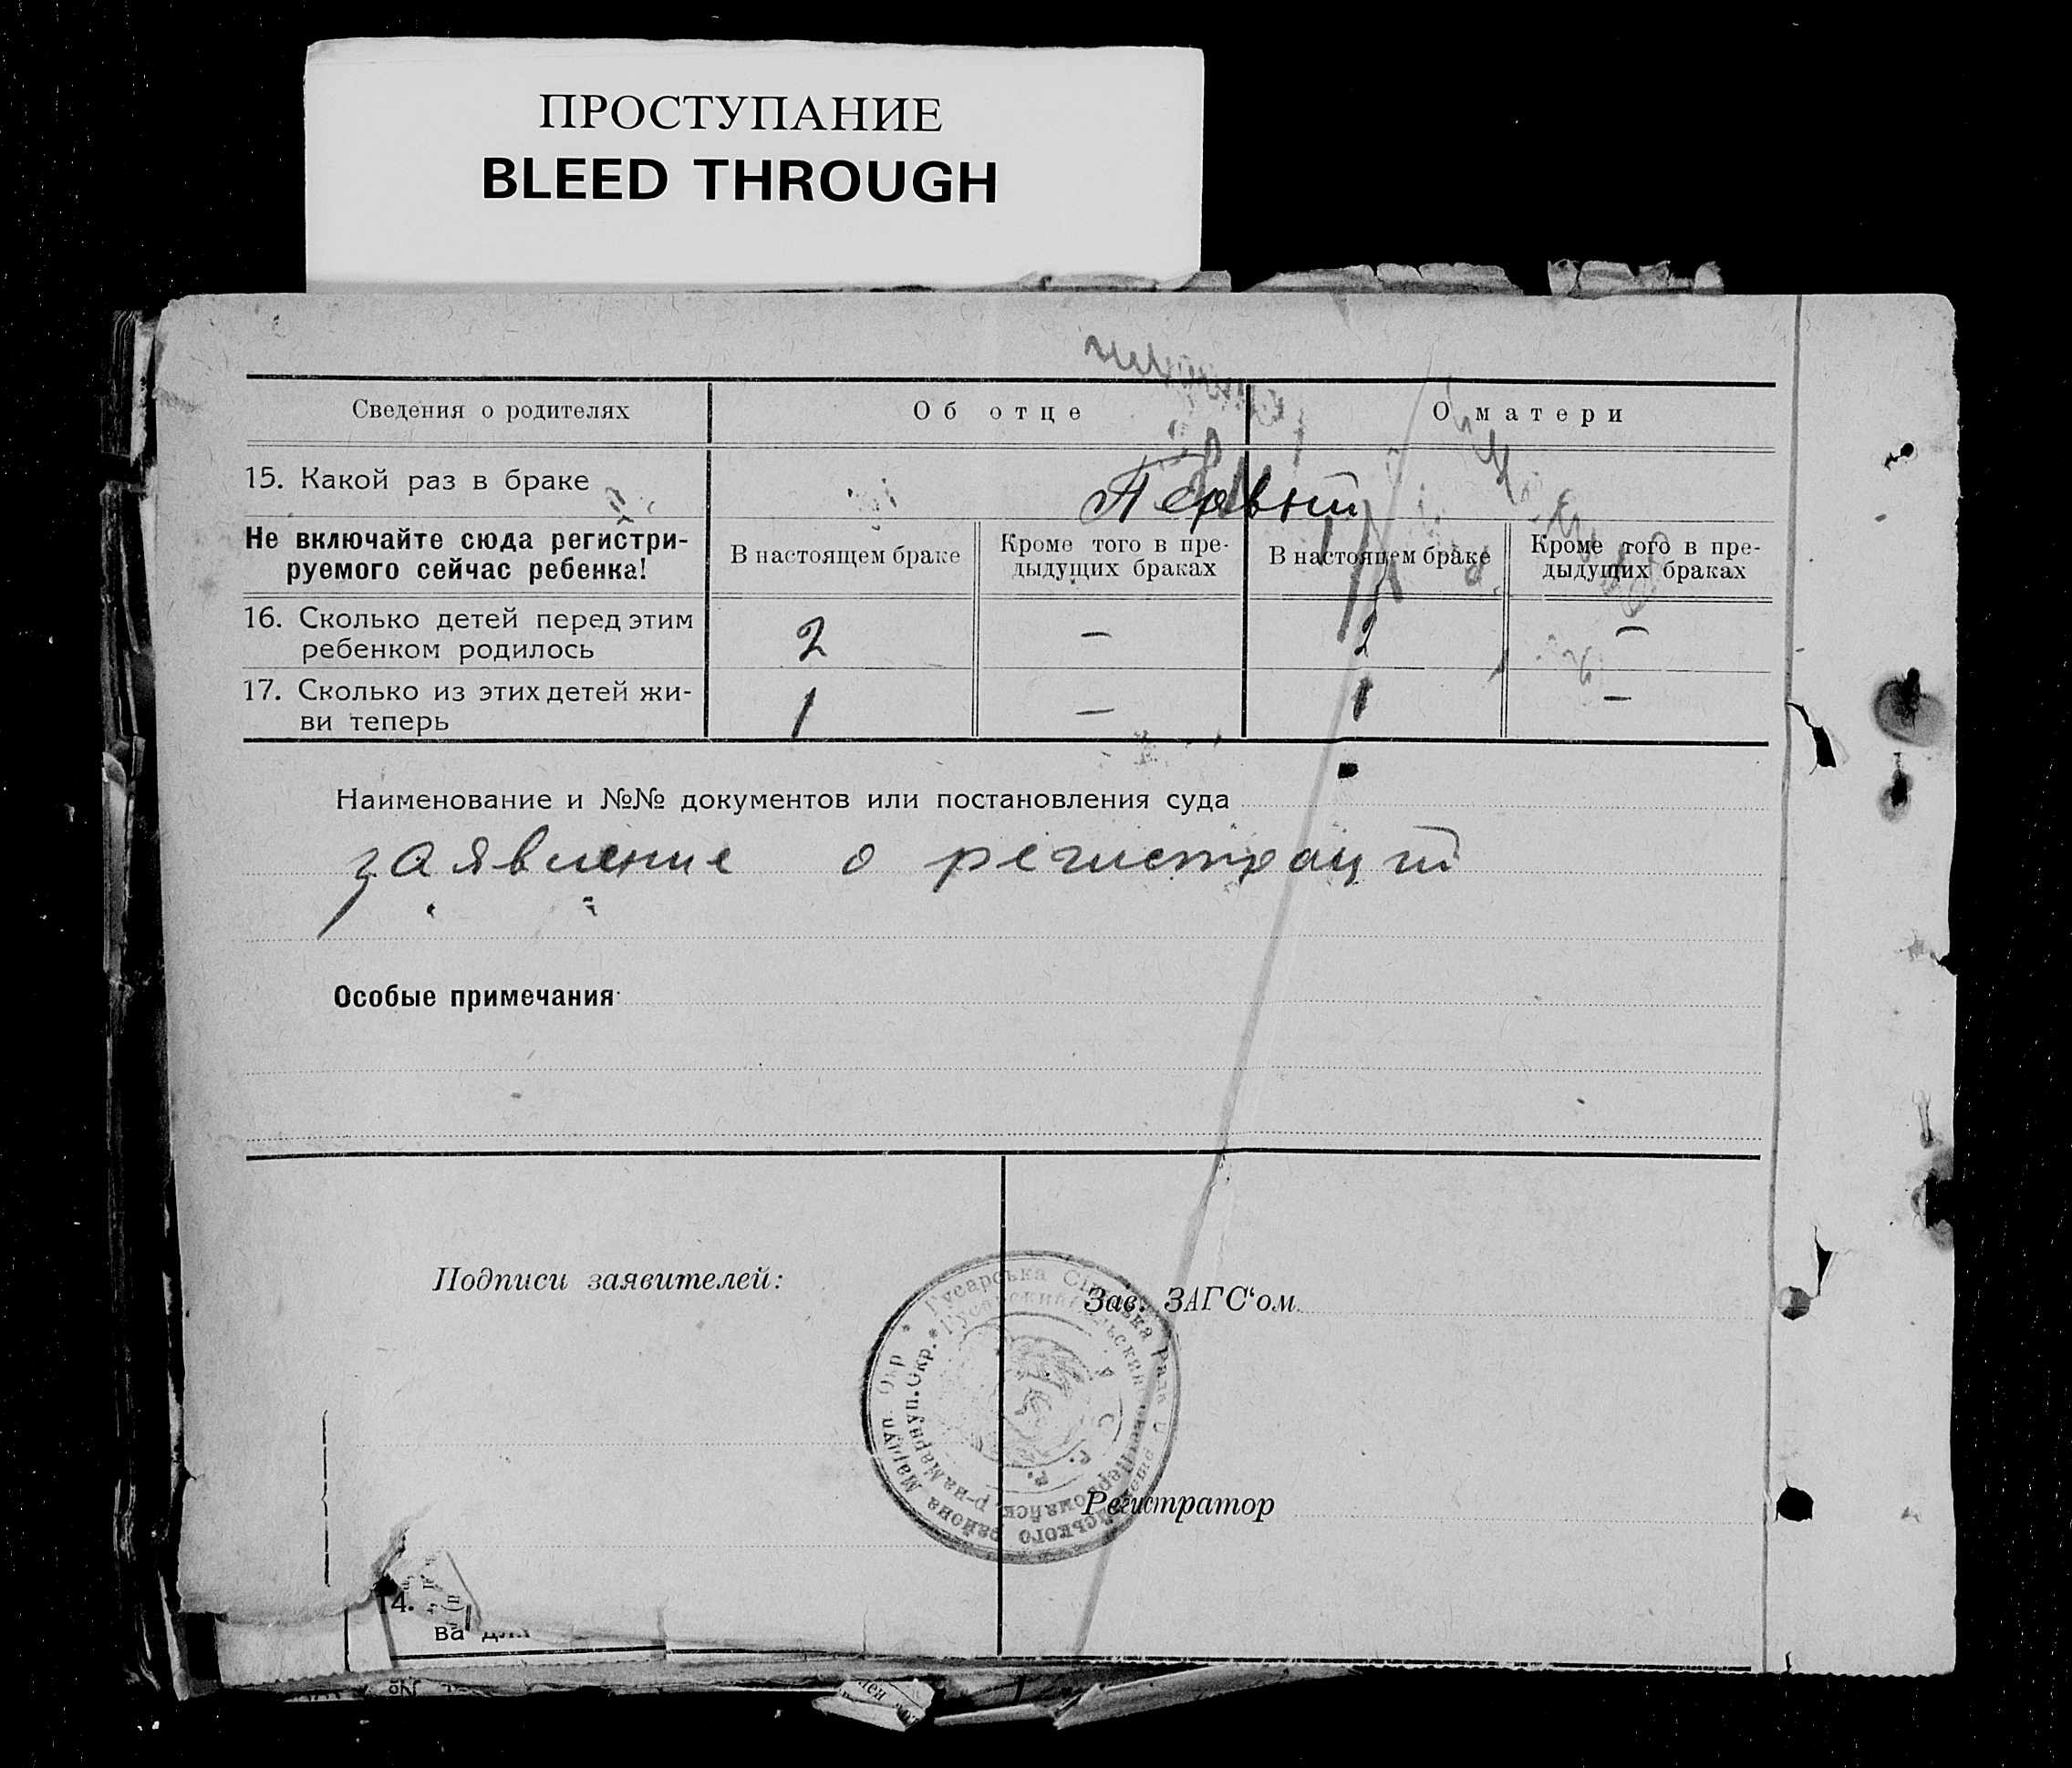 ПРОСТУПАНИЕ
BLEED THROUGH
Сведения о родителях Об отце О матери
15. Какой раз в браке Первый
Не включайте сюда регистри-
руемого сейчас ребенка!
В настоящем браке
Кроме того в пре-
дыдущих браках
В настоящем браке
Кроме того в пре-
дыдущих браках
16. Сколько детей перед этим
ребенком родилось 2 — 2 —
17. Сколько из этих детей жи-
ви теперь 1 — 1 —
Наименование и №№ документов или постановления суда
заявление о регистраций
Особые примечания
Подписи заявителей:
Зав. ЗАГС‘ом
Регистратор
Гусарська Сільська Рада
района Маріуп. Окр
р-на Мариуп. Окр.
14.
ва для
№